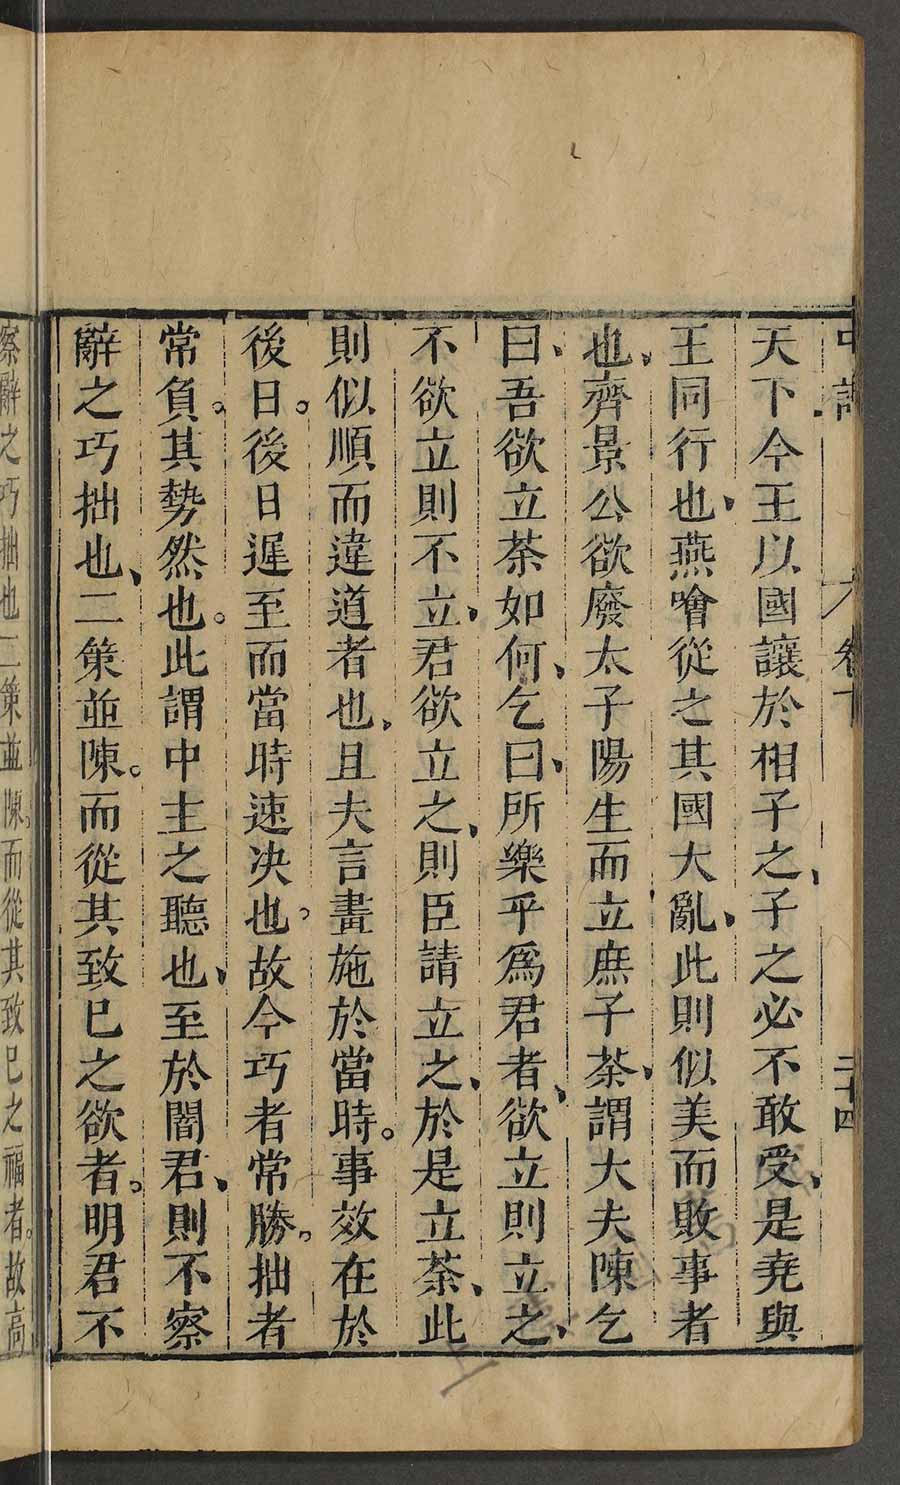 天下今王以國讓於相子之子之必不敢受是堯與
王同行也燕噲從之其國大亂此則似美而敗事者
也齊景公欲廢太子陽生而立庶子荼謂大夫陳乞
曰吾欲立荼如何乞曰所樂乎爲君者欲立則立之
不欲立則不立君欲立之則臣請立之於是立荼此
則似順而違道者也且夫言畫施於當時。事效在於
後日。後日遲至而當時速决也。故今巧者常勝。拙者
常負。其勢然也。此謂中主之聽也至於闇君則不察
辭之巧拙也二策並陳。而從其致已之欲者。明君不
察辭之巧拙也二策並陳。而從其致已之福者。故高